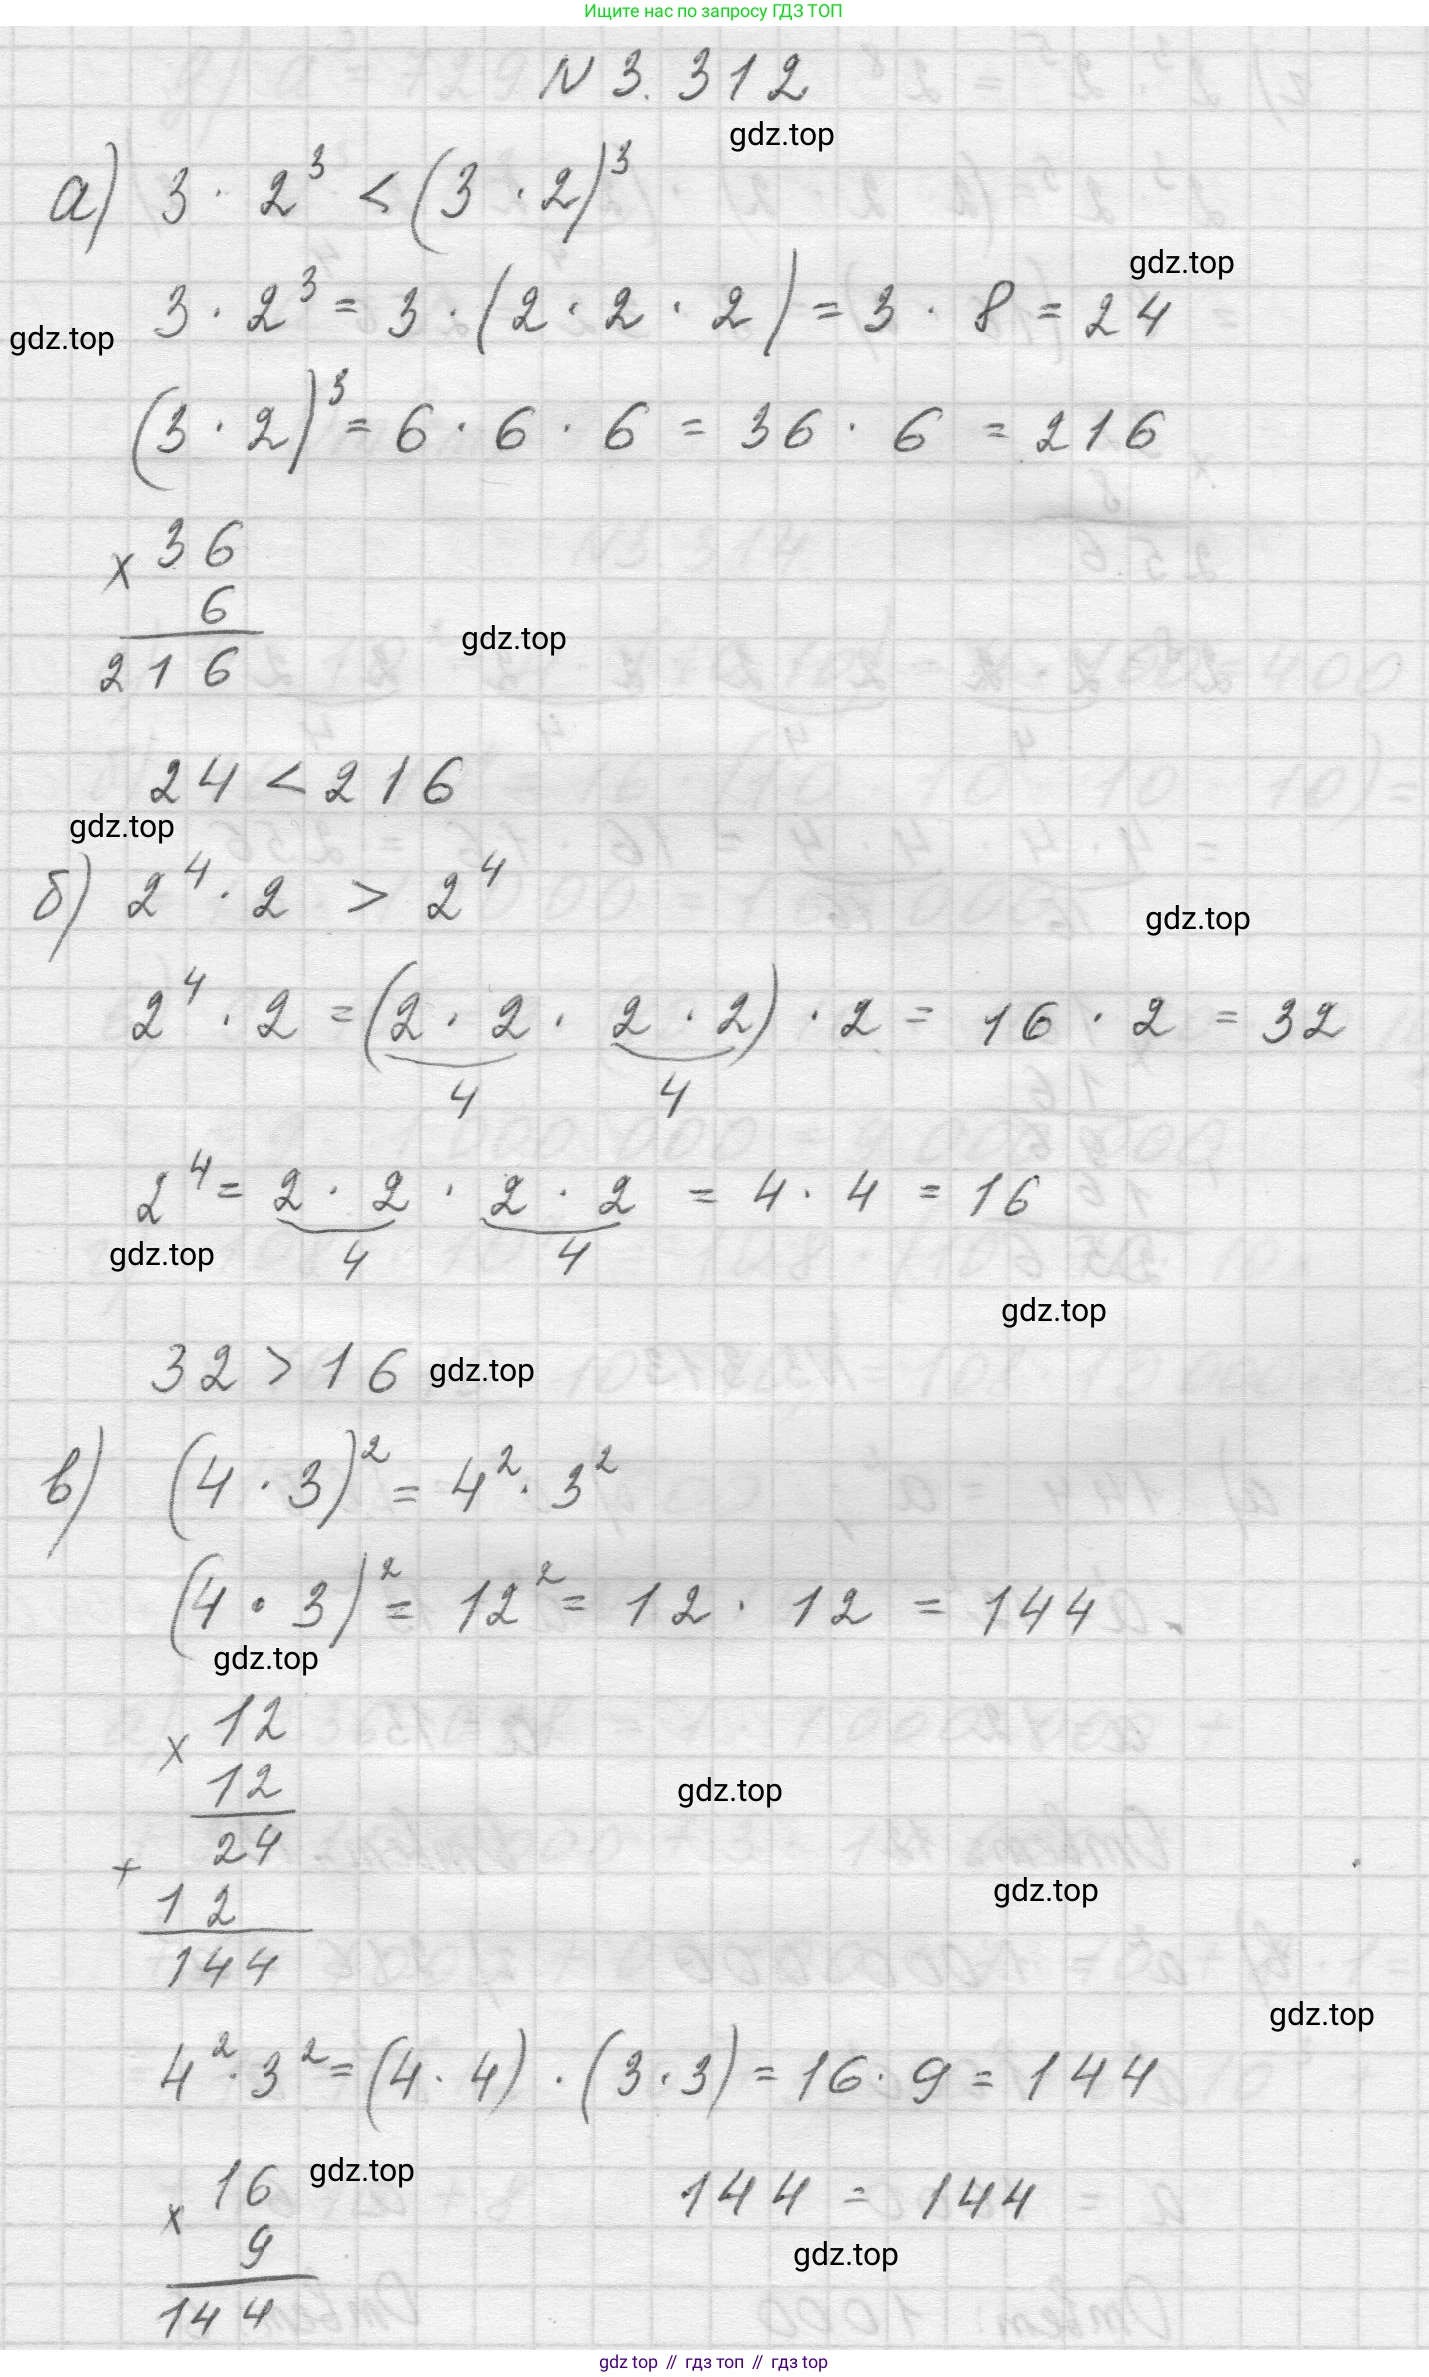 Ищите нас по запросу ГДЗ ТОП
N 3.312
gdz.top
а) 3 · 2³ < (3 · 2)³
gdz.top
3 · 2³ = 3 · (2 · 2 · 2) = 3 · 8 = 24
gdz.top
(3 · 2)³ = 6 · 6 · 6 = 36 · 6 = 216
x 36
6
gdz.top
216
24 < 216
gdz.top
б) 2⁴ · 2 > 2⁴
gdz.top
2⁴ · 2 = (2 · 2 · 2 · 2) · 2 = 16 · 2 = 32
4 4
2⁴ = 2 · 2 · 2 · 2 = 4 · 4 = 16
gdz.top 4 4
gdz.top
32 > 16 gdz.top
в) (4 · 3)² = 4² · 3²
(4 · 3)² = 12² = 12 · 12 = 144
gdz.top
x 12
12
gdz.top
24
+
12
gdz.top
144
gdz.top
4² · 3² = (4 · 4) · (3 · 3) = 16 · 9 = 144
x 16 gdz.top 144 = 144
9 gdz.top
144
gdz top // гдз топ // гдз top